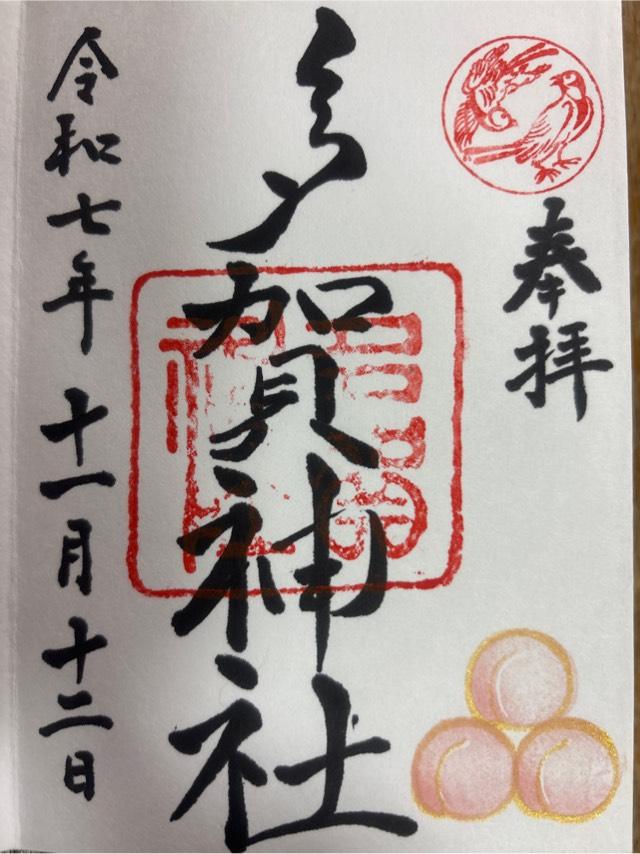 奉拝
多賀神社
令和七年十一月十二日